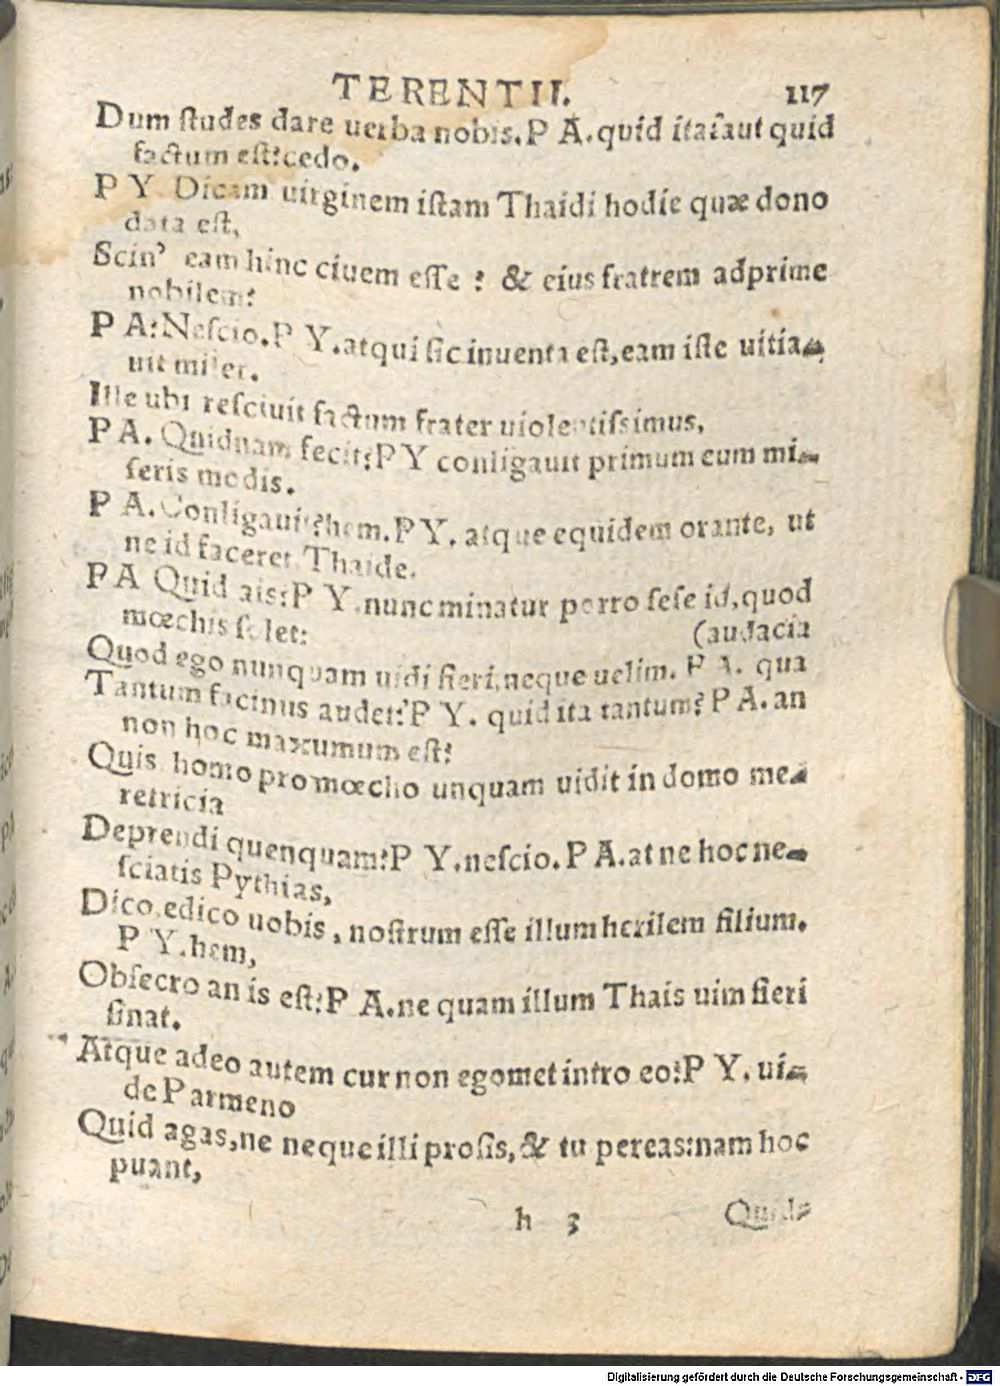 TERENTII. 117
Dum ſtudes dare uerba nobis. P A. quid ita? aut quid
factum eſt? cedo.
P Y Dicam uirginem iſtam Thaidi hodie quæ dono
data eſt,
Scin’ eam hinc ciuem eſſe ? & eius fratrem adprime
nobilem?
P A: Neſcio. P Y. atqui ſic inuenta eſt, eam iſte uitia-
uit miſer.
Ille ubi reſciuit factum frater uiolentiſsimus,
P A. Quidnam fecit? P Y conligauit primum eum mi-
ſeris modis.
P A. Conligauit? hem. P Y. atque equidem orante, ut
ne id faceret Thaide.
P A Quid ais? P Y. nunc minatur porro ſeſe id, quod
mœchis ſolet: (audacia
Quod ego nunquam uidi fieri, neque uelim. P A. qua
Tantum facinus audet? P Y. quid ita tantum? P A. an
non hoc maxumum eſt?
Quis homo pro mœcho unquam uidit in domo me-
retricia
Deprendi quenquam? P Y. neſcio. P A. at ne hoc ne-
ſciatis Pythias,
Dico, edico uobis, noſtrum eſſe illum herilem filium.
P Y. hem,
Obſecro an is eſt? P A. ne quam illum Thais uim fieri
ſinat.
Atque adeo autem cur non egomet intro eo? P Y. ui-
de Parmeno
Quid agas, ne neque illi proſis, & tu pereas: nam hoc
puant,
h 3 Quid-
Digitalisierung gefördert durch die Deutsche Forschungsgemeinschaft - DFG